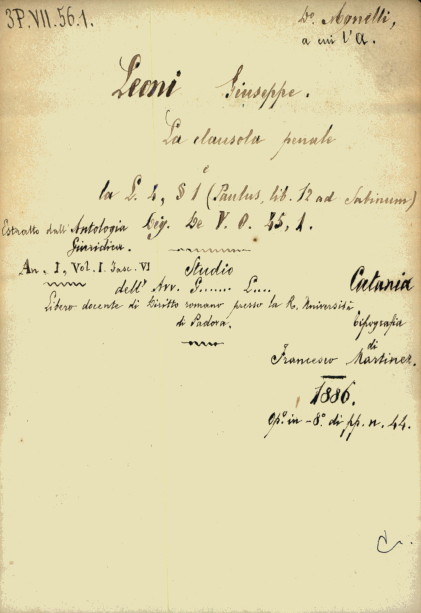 3P.VII.56.1.
Do. Monelli,
a cui l'A.
Leoni Giuseppe.
La clausola penale
e
la L. 4, § 1 (Paulus, lib. 12 ad Sabinum)
Dig. De V. O. 45, 1.
Estratto dall'Antologia
Giuridica.
An. I, Vol. I. Fasc. VI
Studio
dell' Avv. G....... L....
Libero docente di Diritto romano presso la R. Università
di Padova.
Catania
tipografia
di
Francesco Martinez.
1886.
op. in-8º. di pp. n. 44.